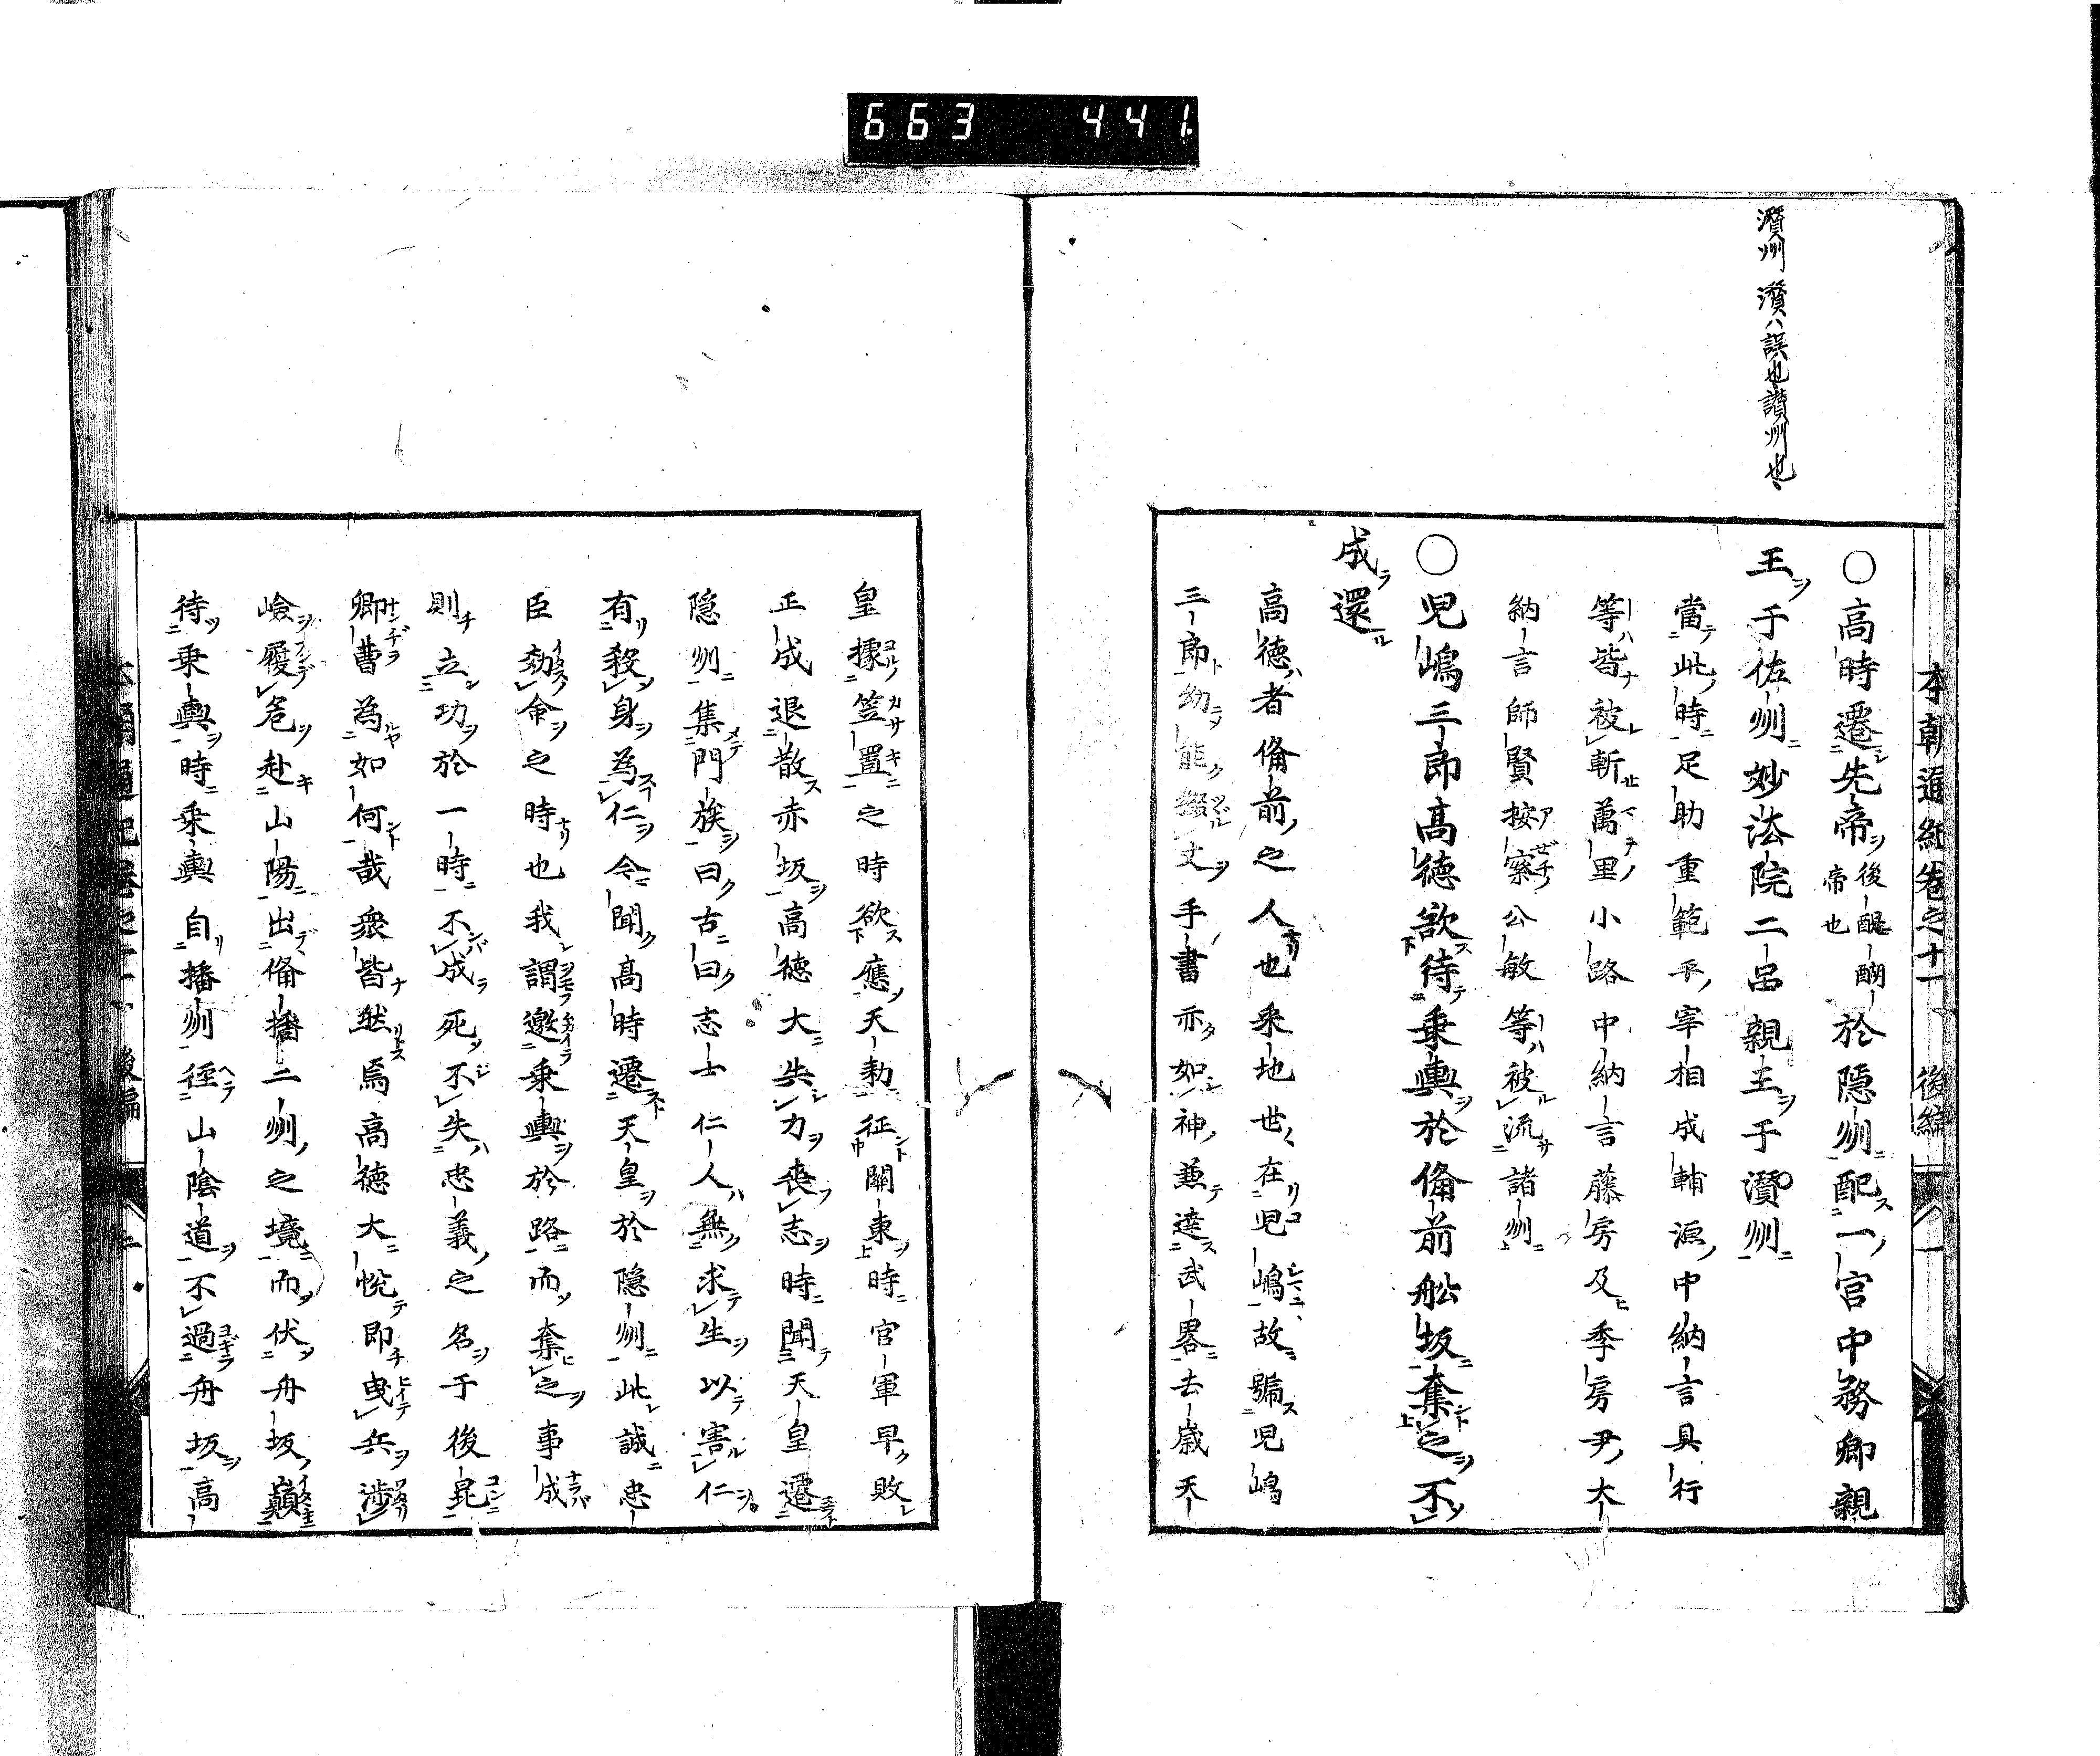 663 441
濱州 濱ハ誤也讃州也
本朝通紀卷之十一 後編 一
○高時遷先帝後醍醐帝也於隠州配一宮中務卿親
王于佐州妙法院二品親王于濱州
當此時足助重範平宰相成輔源中納言具行
等皆被斬萬里小路中納言藤房及季房尹大
納言師賢按察公敏等被流諸州
○児嶋三郎高徳欲待乗輿於俻前舩坂奪之不
成還
高徳者俻前之人也釆地世在児嶋故號児嶋
三郎幼能綴文手書亦如神兼達武畧去歳天
皇據笠置之時欲應天勅征關東時官軍早敗
正成退散赤坂高徳大失力喪志時聞天皇遷
隠州集門族曰古曰志士仁人無求生以害仁
有殺身為仁今聞高時遷天皇於隠州此誠忠
臣効命之時也我謂邀乗輿於路而奪之事成
則立功於一時不成死不失忠義之名于後昆
卿曹為如何哉衆皆然焉高徳大悦即曳兵渉
嶮履危赴山陽出俻播二州之境而伏舟坂巓
待乗輿時乗輿自播州徑山陰道不過舟坂高